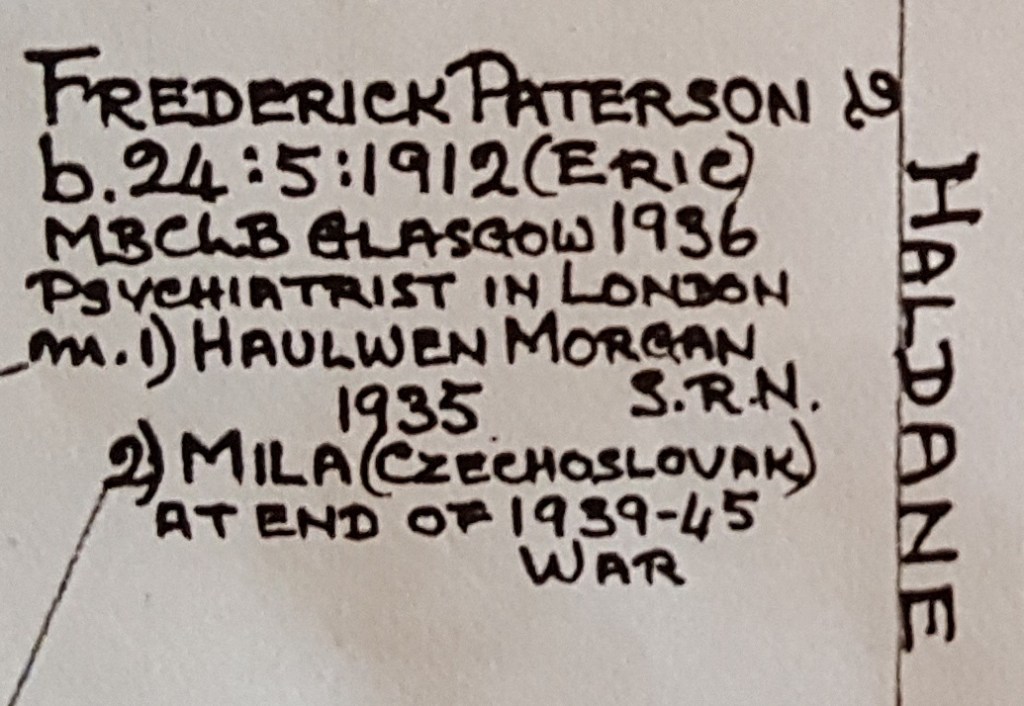 FREDERICK PATERSON
b. 24:5:1912 (ERIC)
MBChB GLASGOW 1936
PSYCHIATRIST IN LONDON
m. 1) HAULWEN MORGAN
1935 S.R.N.
2) MILA (CZECHOSLOVAK)
AT END OF 1939-45
WAR
HALDANE